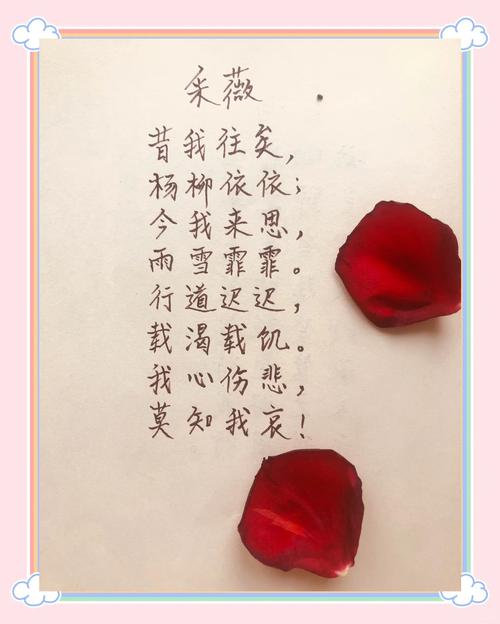 采薇
昔我往矣,
杨柳依依;
今我来思,
雨雪霏霏。
行道迟迟,
载渴载饥。
我心伤悲,
莫知我哀!